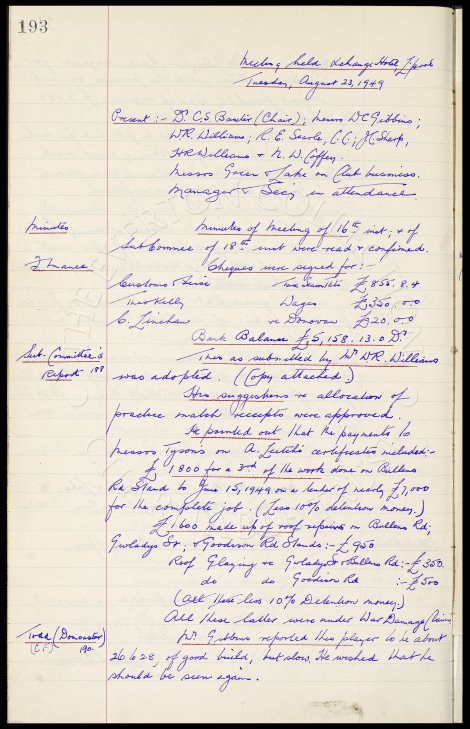 193
Meeting held Exchange Hotel L'pool
Tuesday, August 23, 1949
Present :- Dr. C.S. Baxter (Chair); Messrs W.C. Gibbins;
W.R. Williams, R.E. Searle, C.C.; J.C. Sharp,
H.R. Williams & N.W. Coffey.
Messrs Green & Jake on Club business.
Manager & Sec'y in attendance.
Minutes
Minutes of Meeting of 16th inst; & of
Sub Commee of 18th inst were read & confirmed.
Finance
Cheques were signed for :-
Customs & Excise £855. 8. 4
Theo Kelly Wages £350. 0.0
C. Linehan re Donovan £20. 0.0
Bank Balance £5,158. 13. 0 Dr
Sub-Committee's
Report 188
This as submitted by Mr W.R. Williams
was adopted. (Copy attached.)
His suggestions re allocation of
practice match receipts were approved.
He pointed out that the payments to
Messrs Tysons on A. Leitch's certificates included :-
£1800 for a 3rd of the work done on Bullens
Rd Stand to June 15, 1949 on a tender of nearly £7,000
for the complete job. (Less 10% detention money.)
£1600 made up of roof repairs on Bullens Rd;
Gwladys St; & Goodison Rd Stands :- £950
Roof Glazing re Gwladys St & Bullens Rd :- £350.
do do Goodison Rd :- £500
(All these less 10% Detention money.)
All these latter were under War Damage Claim
Todd (Doncaster)
(C.F.) 190.
Mr. Gibbins reported this player to be about
26 to 28, of good build, but slow. He wished that he
should be seen again.